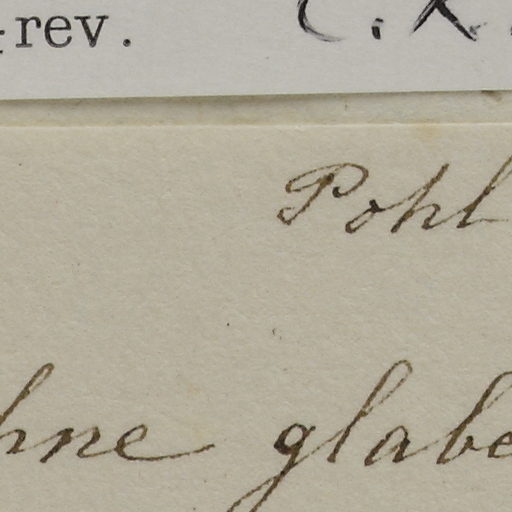 -rev. C. K.
Pohl
hne glabe